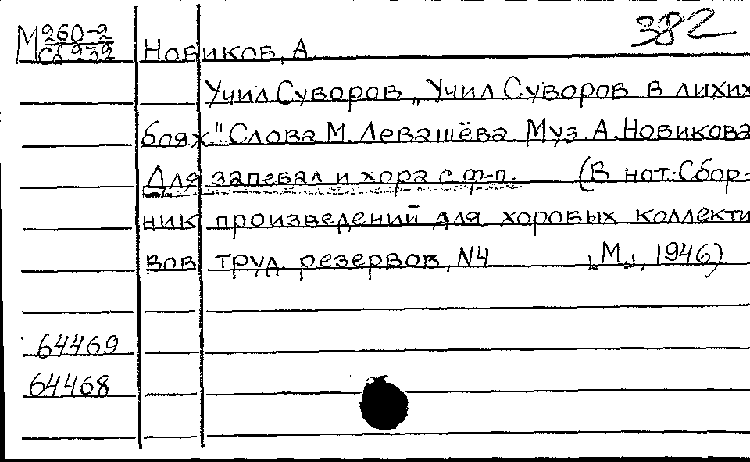 382
М 260-2
Сб 939
Новиков, А.
Учил Суворов „Учил Суворов в лихих
боях" Слова М. Левашёва Муз. А. Новикова
Для запевал и хора с ф-п. (В нот. Сбор-
ник произведений для хоровых коллекти
вов труд. резервов, N4 , М., 1946)
64469
64468